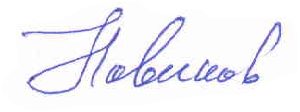 Новиков